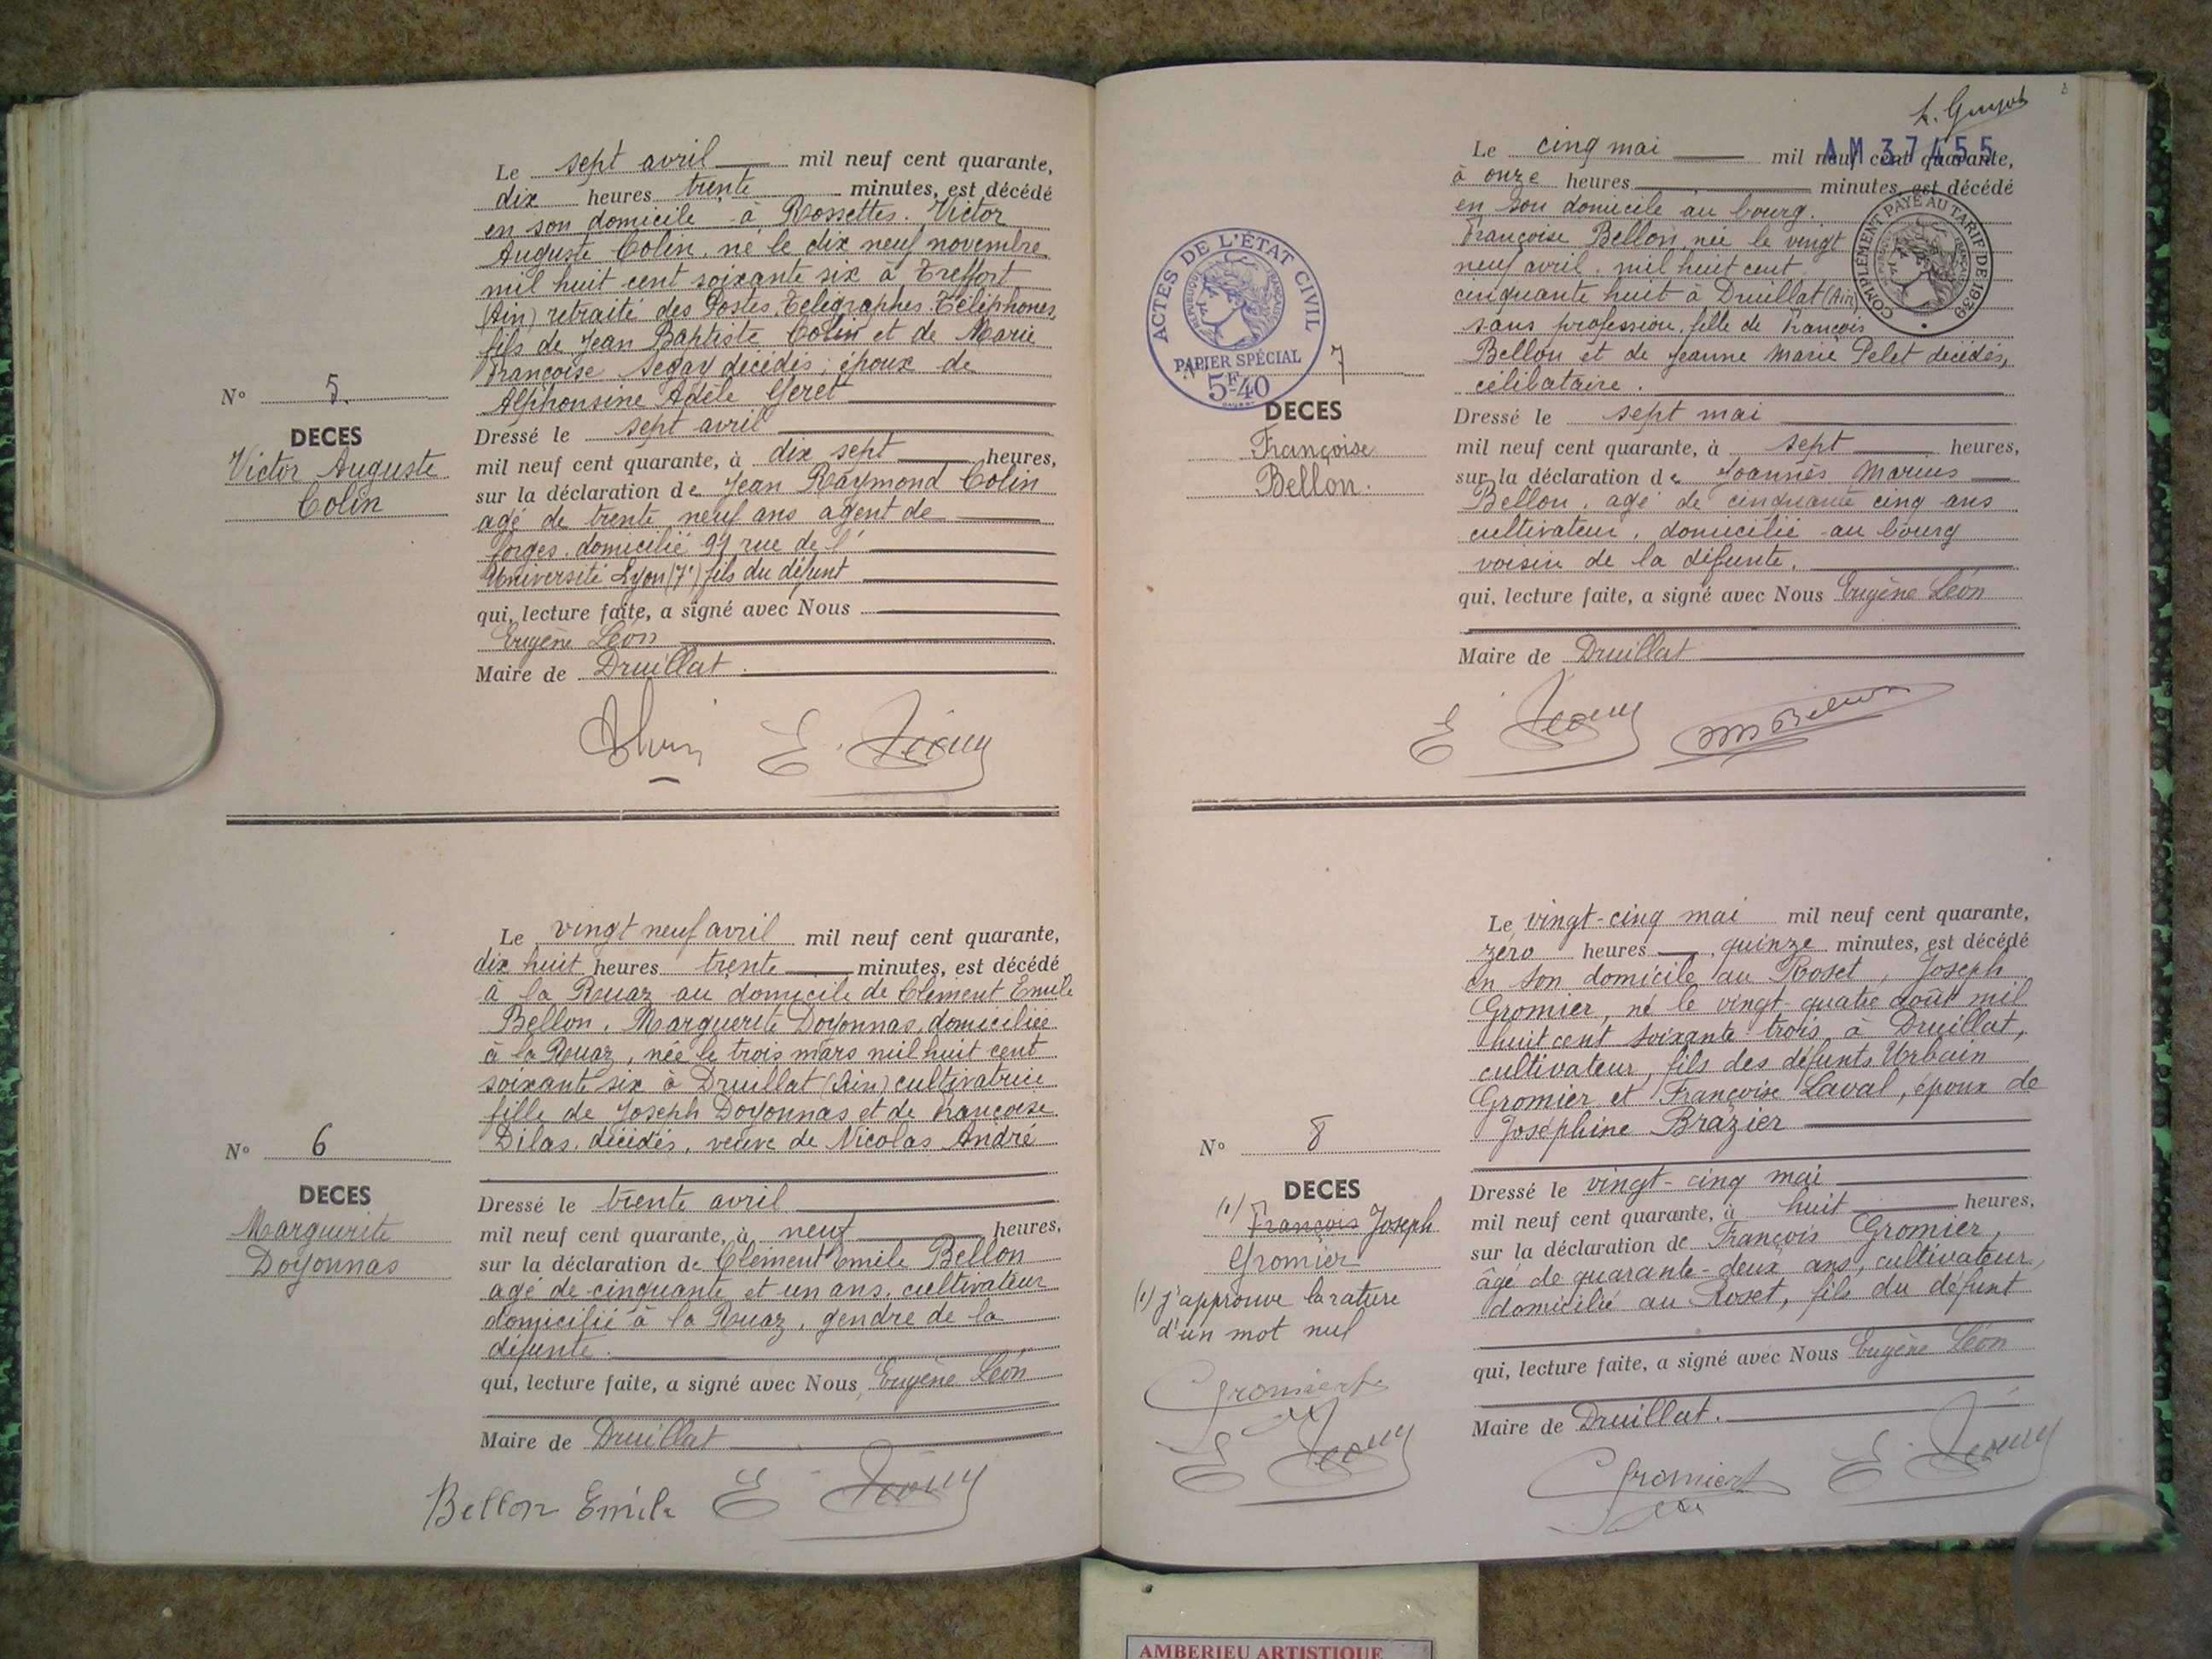 Le sept avril mil neuf cent quarante,
dix heures trente minutes, est décédé
en son domicile à Rossettes. Victor
Auguste Colin, né le dix neuf novembre
mil huit cent soixante six à Treffort
(Ain) retraité des Postes, Télégraphes Téléphones,
fils de Jean Baptiste Colin et de Marie
Françoise décédés, époux de
Alphonsine Adèle
N° 5.
DECES
Victor Auguste
Colin
Dressé le sept avril
mil neuf cent quarante, à dix sept heures,
sur la déclaration de Jean Raymond Colin
agé de trente neuf ans agent de
forges, domicilié 99 rue de l'
Université Lyon (7e) fils du défunt
qui, lecture faite, a signé avec Nous
Eugène Léon
Maire de Druillat.
Le vingt neuf avril mil neuf cent quarante,
dix huit heures trente minutes, est décédé
à la Ruaz au domicile de Clément Emile
Bellon, Marguerite Doyonnas, domiciliée
à la Ruaz, née le trois mars mil huit cent
soixante six à Druillat (Ain) cultivatrice
fille de Joseph Doyonnas et de Françoise
Dilas, décédés, veuve de Nicolas André
N° 6
DECES
Marguerite
Doyonnas
Dressé le trente avril
mil neuf cent quarante, à neuf heures,
sur la déclaration de Clément Emile Bellon
agé de cinquante et un ans, cultivateur
domicilié à la Ruaz, gendre de la
défunte.
qui, lecture faite, a signé avec Nous Eugène Léon
Maire de Druillat
Bellon Emile
AM 37455
Le cinq mai mil neuf cent quarante,
à onze heures minutes, est décédé
en son domicile au bourg.
Françoise Bellon née le vingt
neuf avril, mil huit cent
cinquante huit à Druillat (Ain)
sans profession, fille de François
Bellon et de Jeanne Marie Pelet décédés,
célibataire.
COMPLÉMENT PAYÉ AU TARIF DE 1939
ACTES DE L'ÉTAT CIVIL
RÉPUBLIQUE FRANÇAISE
PAPIER SPÉCIAL
5F.40
7
DECES
Françoise
Bellon.
Dressé le sept mai
mil neuf cent quarante, à sept heures,
sur la déclaration de Joannès Marius
Bellon, agé de cinquante cinq ans
cultivateur, domicilié au bourg
voisin de la défunte.
qui, lecture faite, a signé avec Nous Eugène Léon
Maire de Druillat
Le vingt-cinq mai mil neuf cent quarante,
zéro heures, quinze minutes, est décédé
en son domicile au Roset, Joseph
Gromier, né le vingt-quatre août mil
huit cent soixante trois à Druillat,
cultivateur, fils des défunts Urbain
Gromier et Françoise Laval, époux de
Joséphine Brazier
N° 8
DECES
(1) François Joseph
Gromier
(1) j'approuve la rature
d'un mot nul
Dressé le vingt-cinq mai
mil neuf cent quarante, à huit heures,
sur la déclaration de François Gromier,
âgé de quarante-deux ans, cultivateur,
domicilié au Roset, fils du défunt
qui, lecture faite, a signé avec Nous Eugène Léon
Maire de Druillat.
AMBERIEU ARTISTIQUE